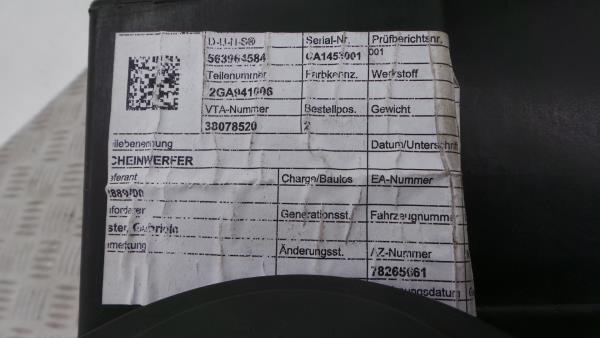 D-U-N-S® Serial-Nr. Prüfberichtsnr.
563964584 CA1453001 001
Teilenummer Farbkennz. Werkstoff
2GA941006
VTA-Nummer Bestellpos. Gewicht
38078520 2
eilebenennung Datum/Unterschrift
CHEINWERFER
eferant Charge/Baulos EA-Nummer
889/00
nforderer Generationsst. Fahrzeugnumme
ster, Gabriele
merkung Änderungsst. AZ-Nummer
78265661
ungsdatum